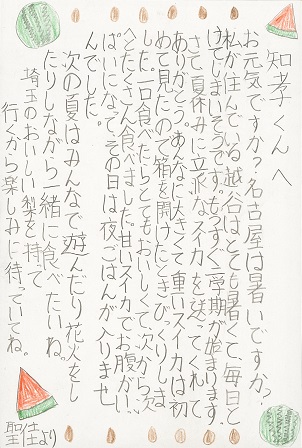 知孝くんへ
お元気ですか？名古屋は暑いですか？
私が住んでいる越谷はとても暑くて、毎日と
けてしまいそうです。もうすぐ二学期が始まります。
さて、夏休みに立派なスイカを送ってくれて、
ありがとう。あんなに大きくて重いスイカは初
めて見たので箱を開けたときびっくりしま
した。一口食べたらとてもおいしくて、次から次
へとたくさん食べました。甘いスイカでお腹がい
ぱいになって、その日は夜ごはんが入りませ
んでした。
次の夏はみんなで遊んだり花火をし
たりしながら一緒に食べたいね。
埼玉のおいしい梨を持って
行くから楽しみに待っていてね。
聖佳より